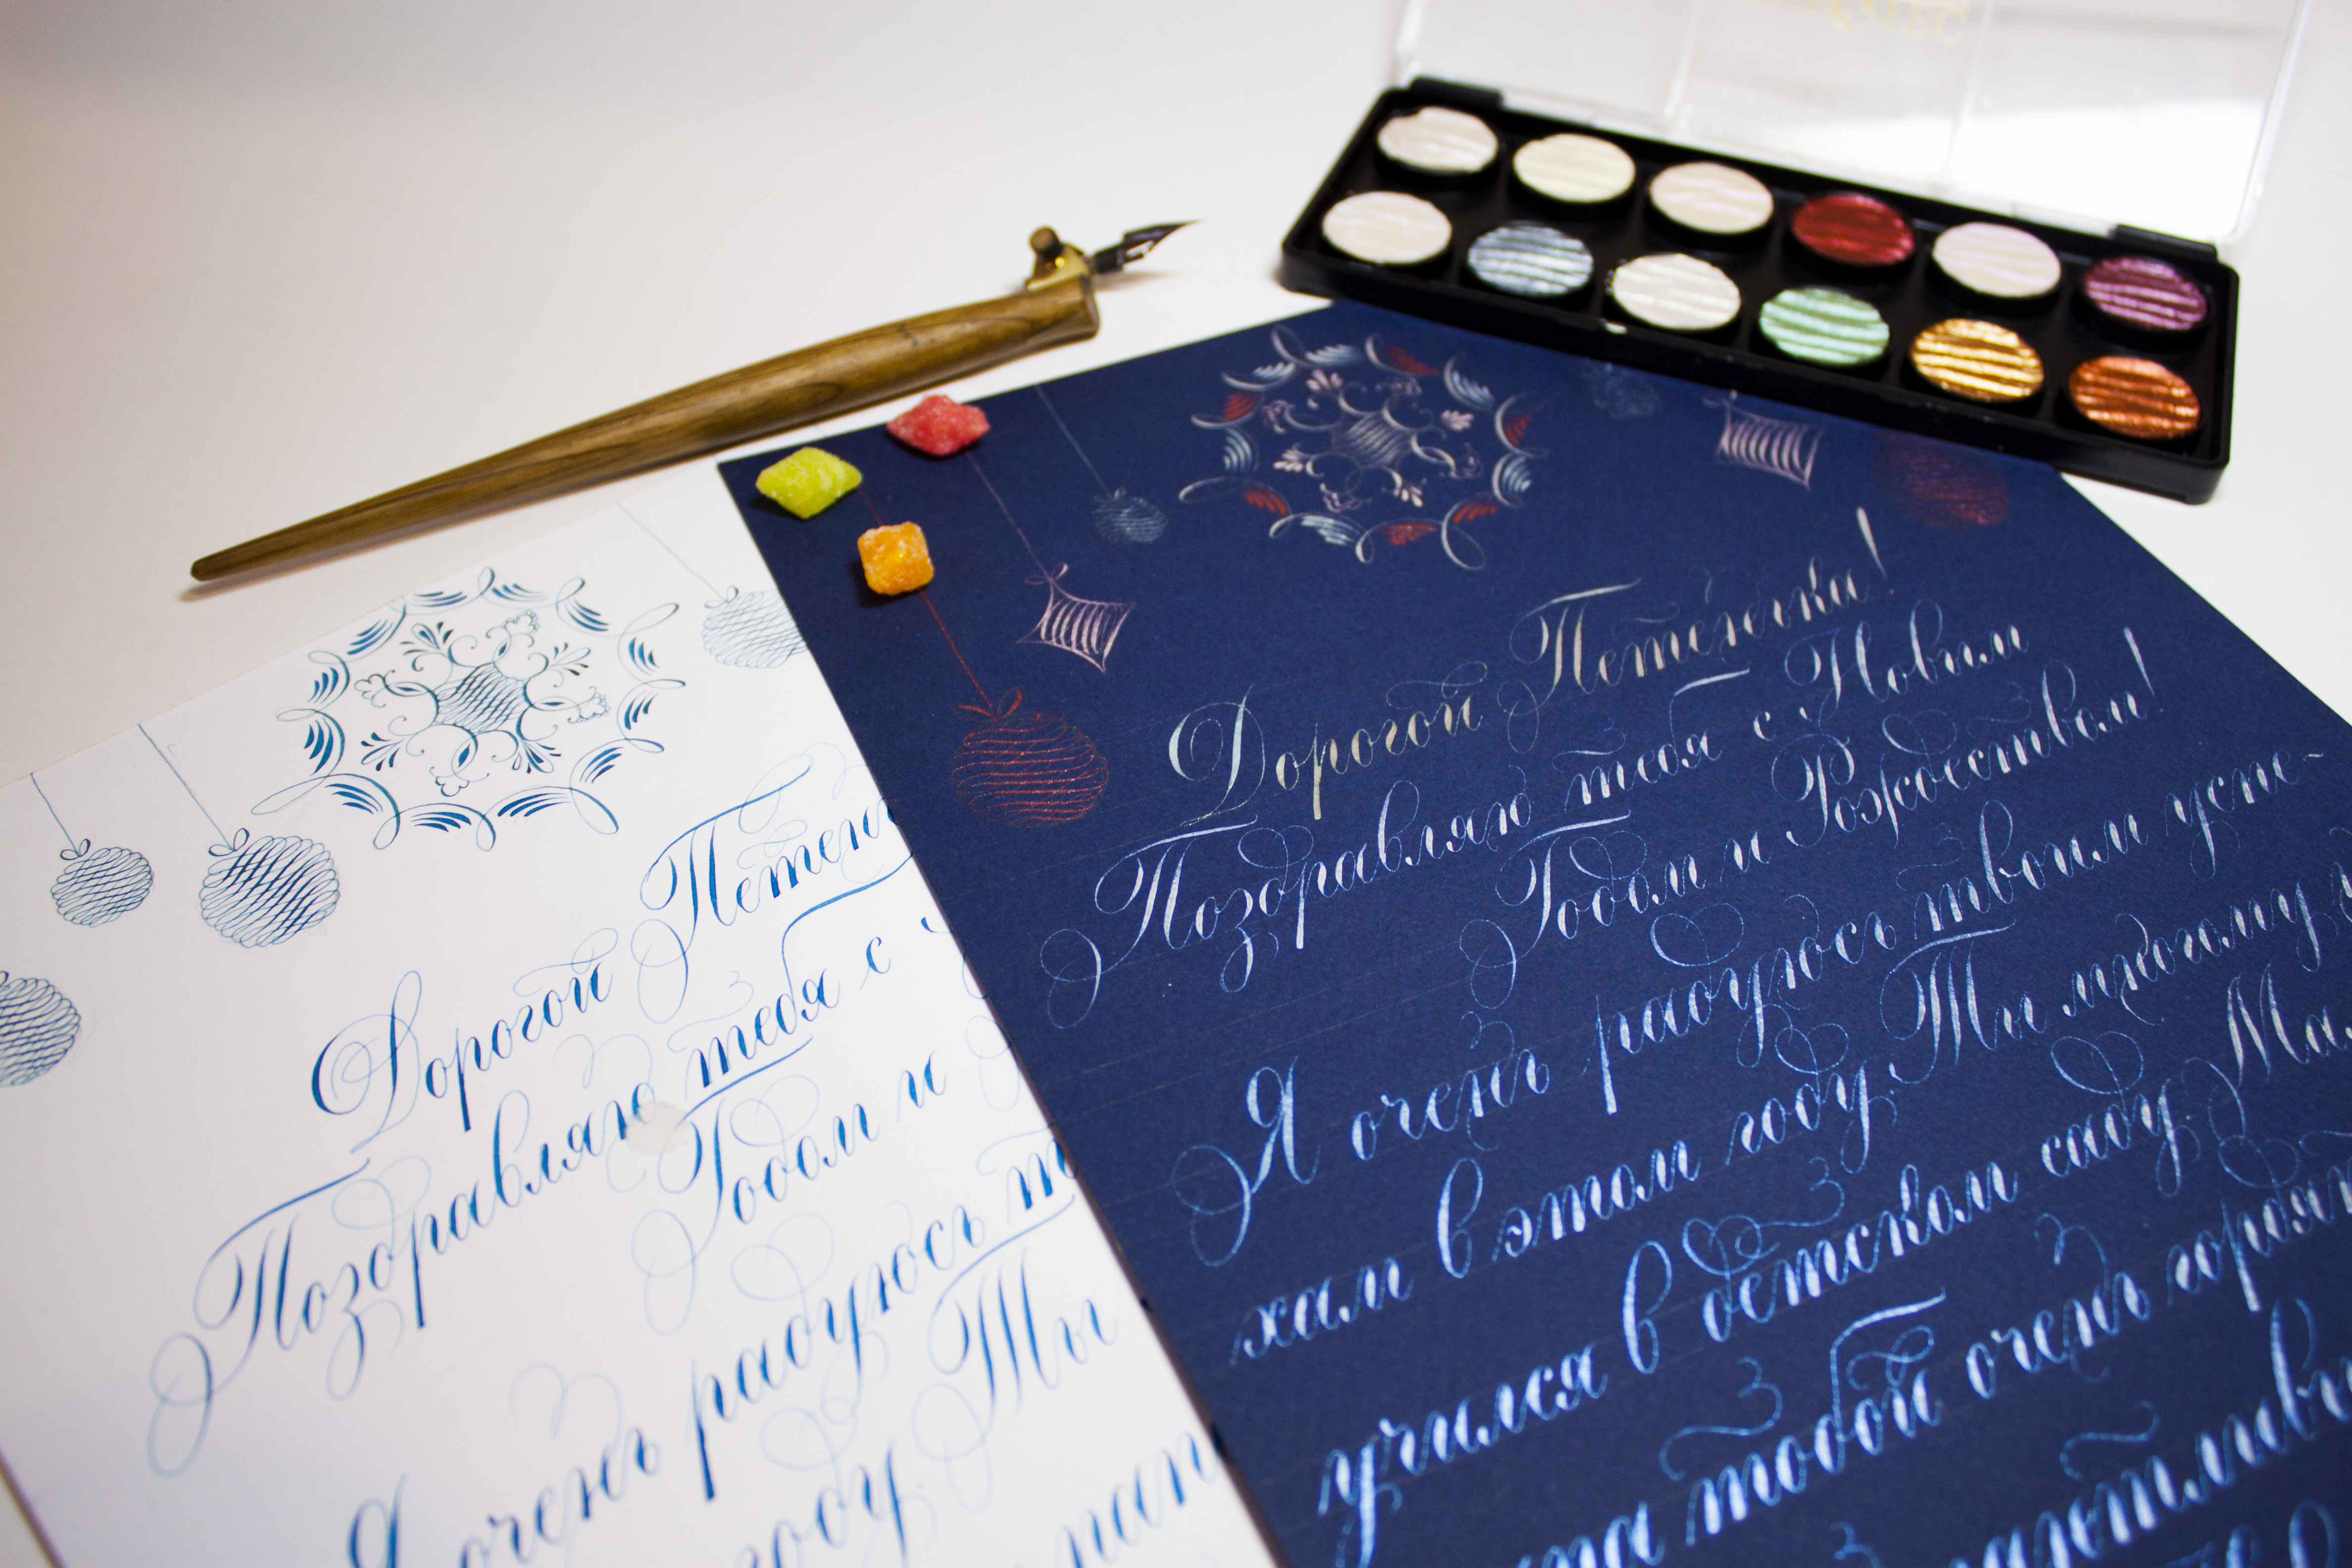 Дорогой Петенька!
Поздравляю тебя с Новым
Годом и Рождеством!
Я очень радуюсь твоим успе-
хам в этом году. Ты многому
учился в детском саду. Ма
тобой очень гордят
Дорогой
Поздравляю тебя с
Годом и
Я очень радуюсь
году Ты